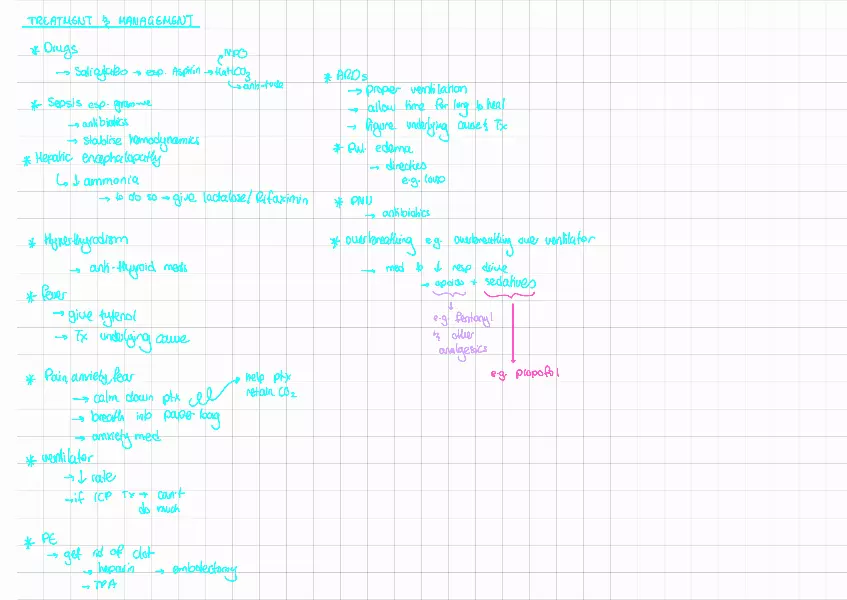 TREATMENT & MANAGEMENT
* Drugs
→ Salicylates → esp. Aspirin → NaHCO3
→ NPO
→ anti-
* Sepsis esp. gram -ve
→ antibiotics
→ stabilise hemodynamics
* Hepatic encephalopathy
↳ ↓ ammonia
→ to do so → give lactalose/ Rifaximin
* Hyperthyrodism
→ anti-thyroid meds
* fever
→ give tylenol
→ Tx underlying cause
* Pain, anxiety, fear
→ calm down ptx
→ help ptx
retain CO2
→ breath into paper-bag
→ anxiety med
* ventilator
→ ↓ rate
→ if ICP Tx → can't
do much
* PE
→ get rid of clot
→ heparin → embolectomy
→ TPA
* ARDs
→ proper ventilation
→ allow time for lung to heal
→ figure underlying cause & Tx
* Pul. edema
→ diuretics
e.g.
* PNU
→ antibiotics
* overbreathing e.g. overbreathing over ventilator
→ med to ↓ resp drive
→ opoids + sedatives
e.g. fentanyl
& other
analgesics
e.g. propofol